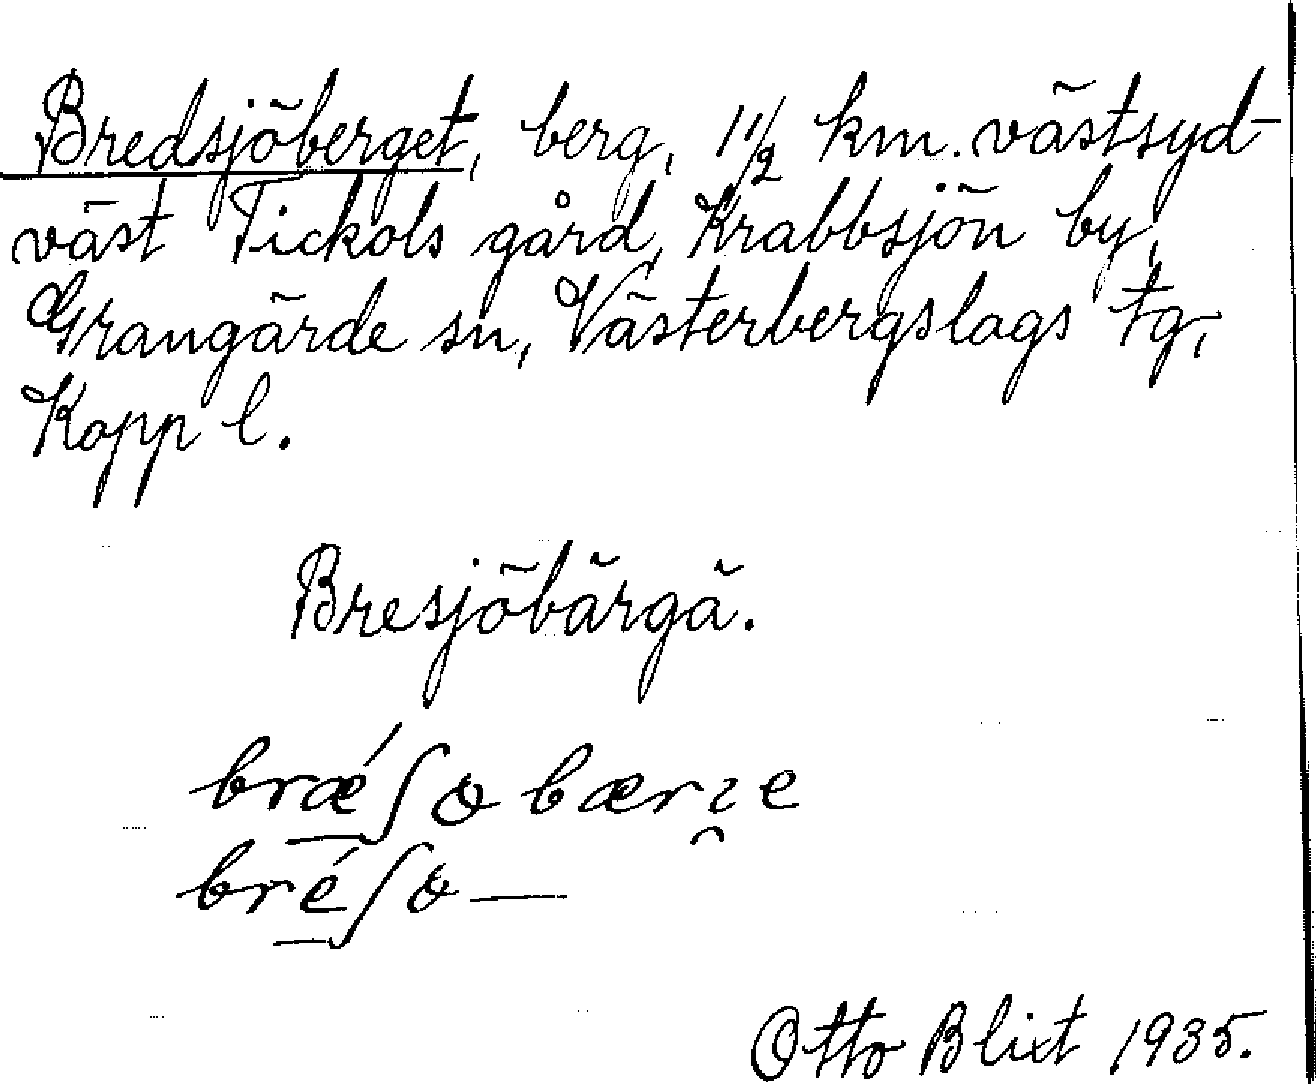 Bredsjöberget, berg, 1 1/2 km. västsyd-
väst Tickols gård, Krabbsjön by,
Grangärde sn, Västerbergslags tg,
Kopp l.
Bresjöbärgä.
brǽʃobærɿe
bréʃo—
Otto Blixt 1935.